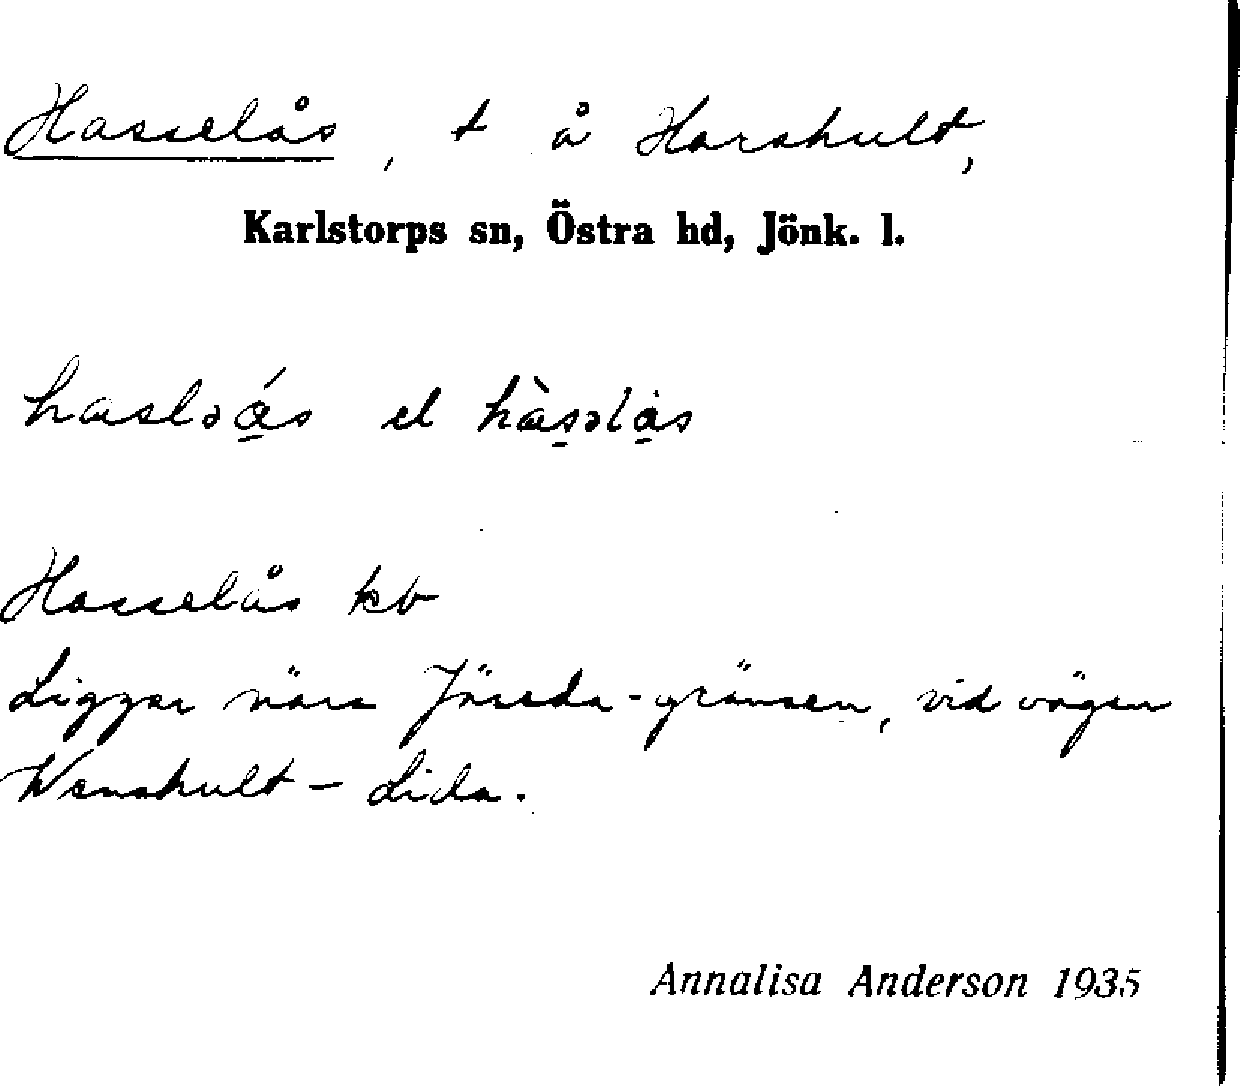 Hasselås, t å Harshult,
Karlstorps sn, Östra hd, Jönk. l.
hasləɑ́s el hàsəlɑs
Hasselås kb
Ligger nära Järeda-gränsen, vid vägen
Wenshult - Lida.
Annalisa Anderson 1935